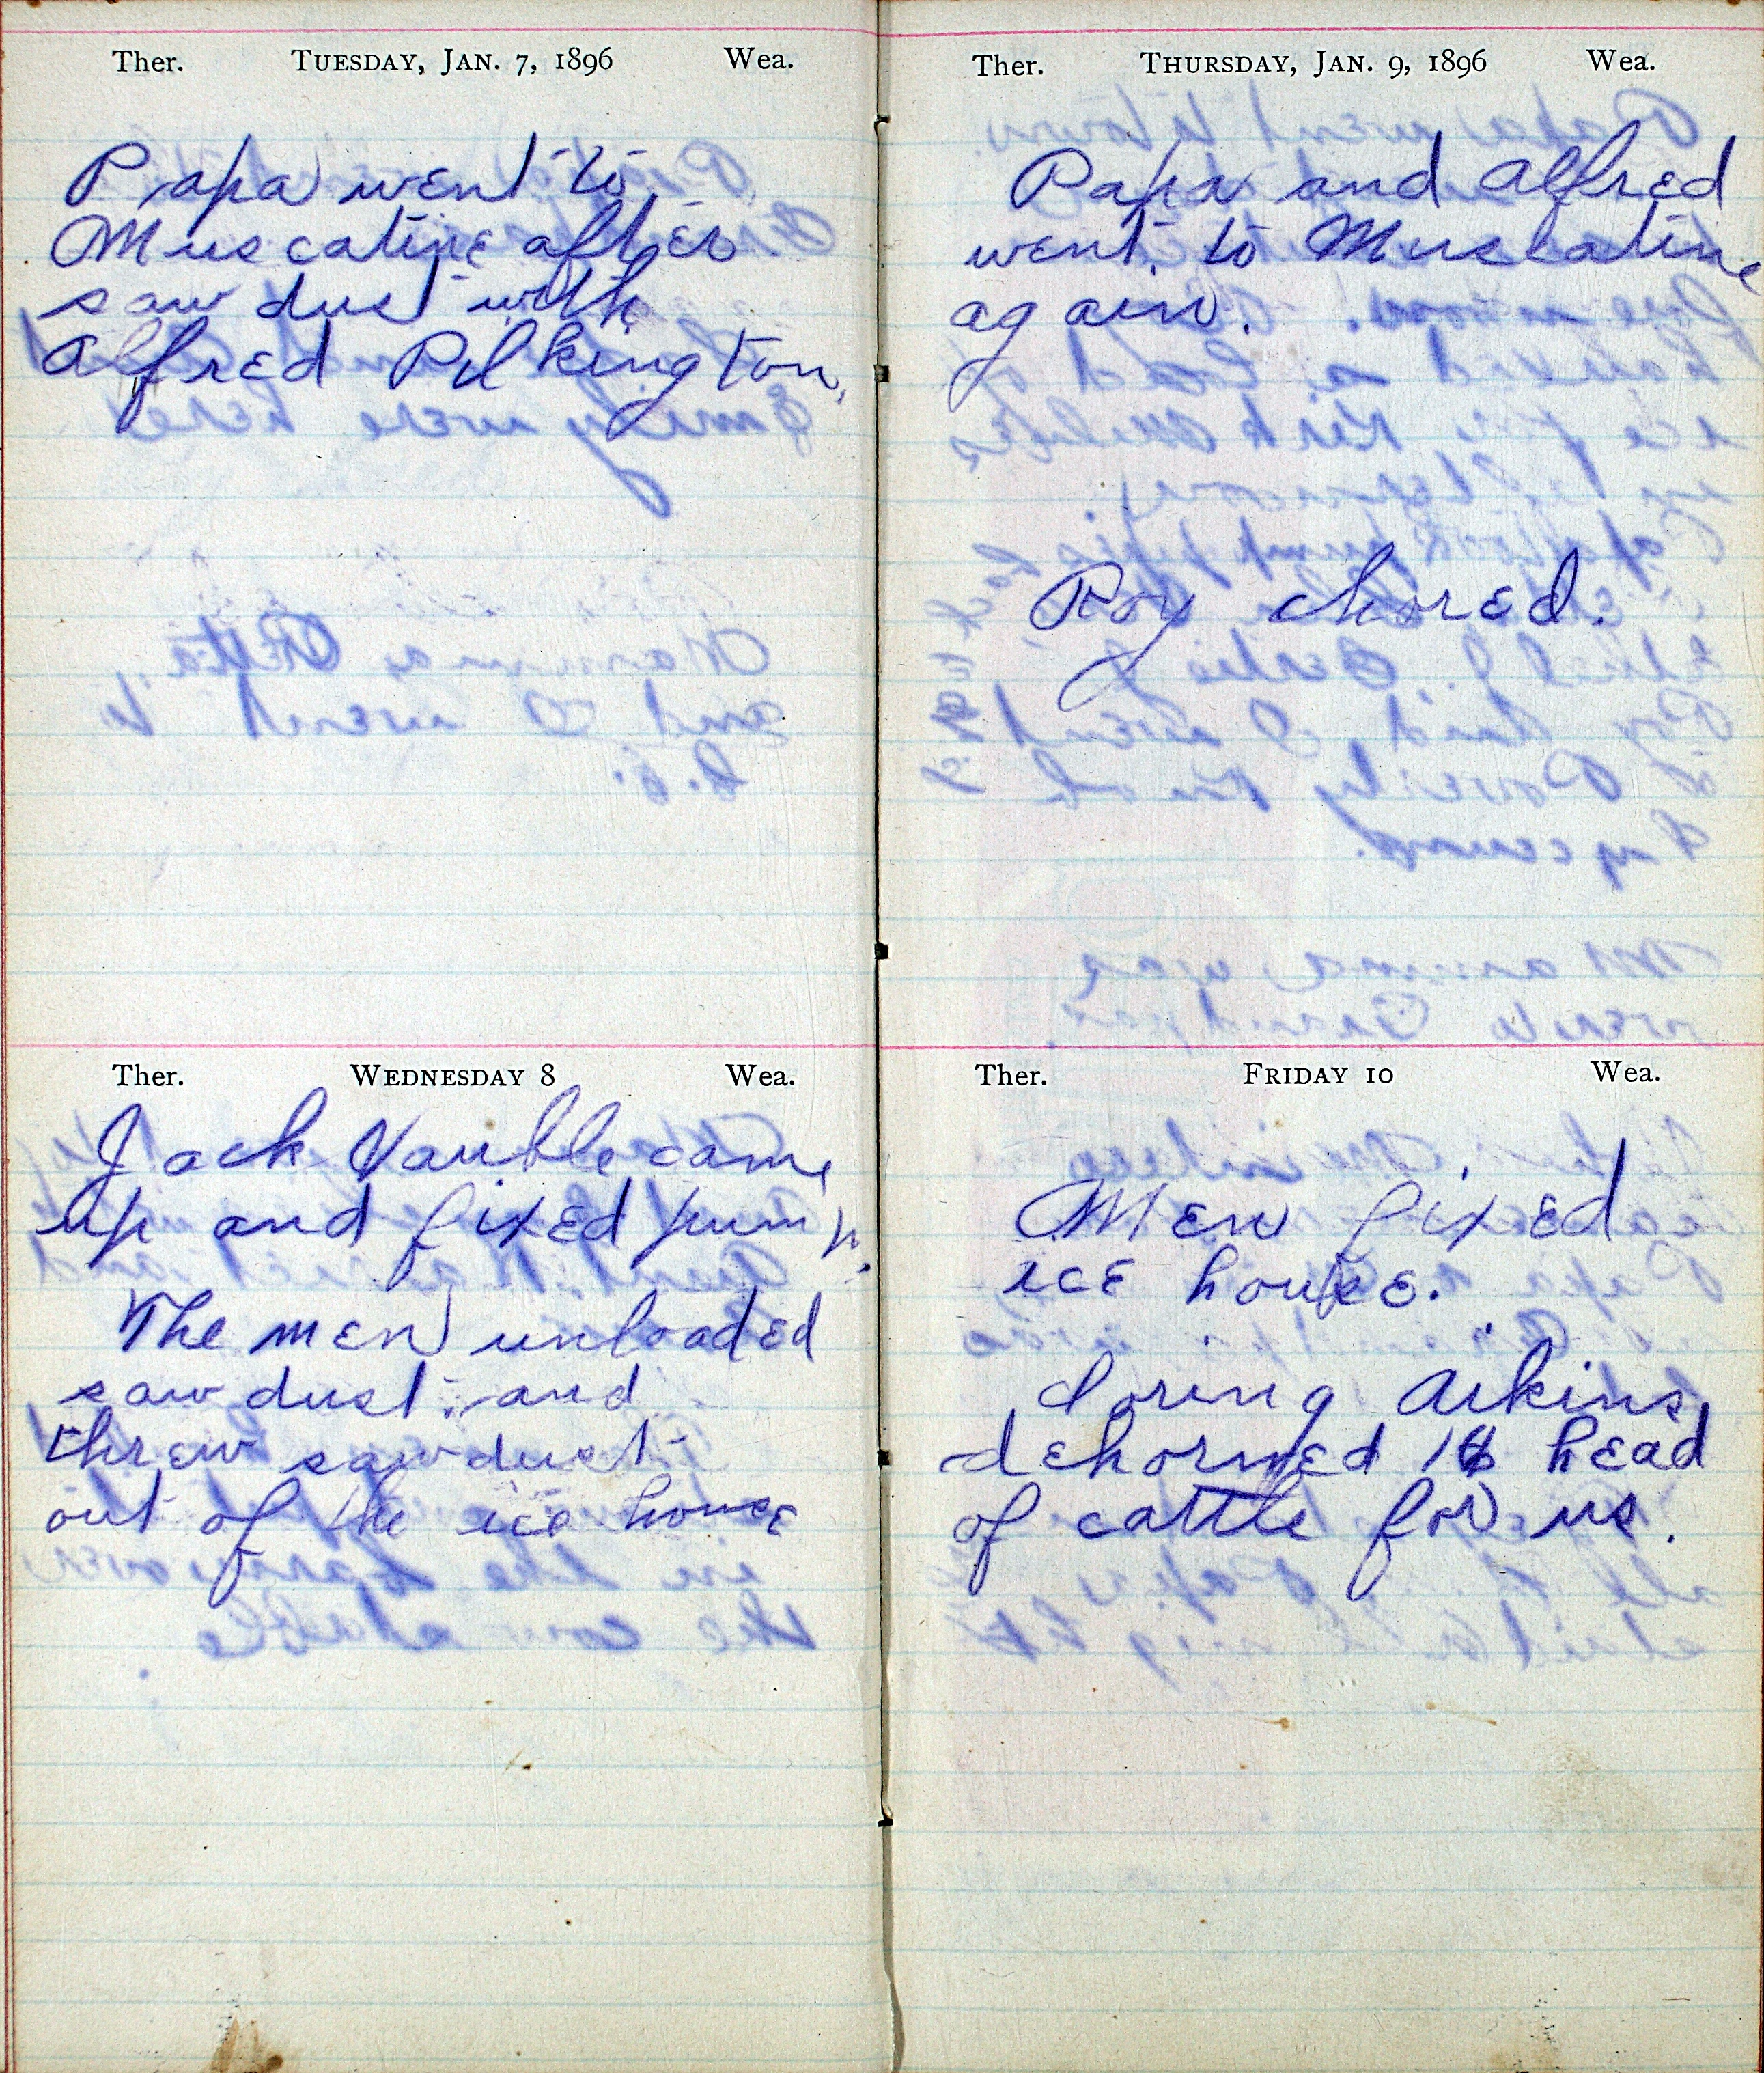 Ther. TUESDAY, JAN. 7, 1896 Wea.
Papa went to
Muscatine after
saw dust with
Alfred Pilkington,
Ther. WEDNESDAY 8 Wea.
Jack Vauble came
up and fixed pump.
The men unloaded
saw dust and
threw sawdust
out of the ice house
Ther. THURSDAY, JAN. 9, 1896 Wea.
Papa and Alfred
went to Muscatine
again.
Roy chored.
Ther. FRIDAY 10 Wea.
Men fixed
ice house.
Loring Aikins
dehorned head
of cattle for us.